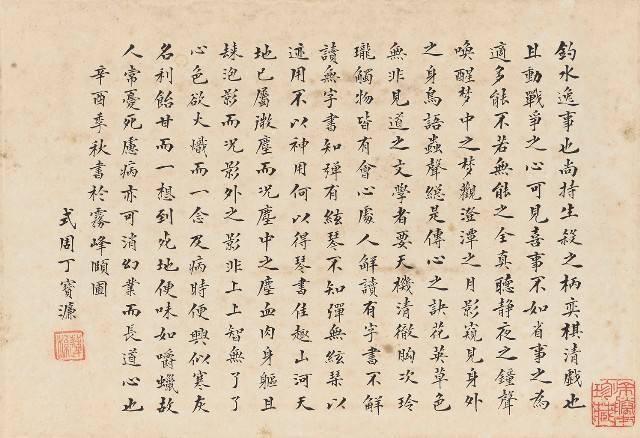 釣水逸事也尚持生殺之柄奕棋清戲也
且動戰爭之心可見喜事不如省事之為
適多能不若無能之全真聽静夜之鐘聲
喚醒梦中之梦觀澄潭之月影窺見身外
之身鳥語蟲聲總是傳心之訣花英草色
無非見道之文學者要天機清徹胸次玲
瓏觸物皆有會心處人解讀有字書不解
讀無字書知彈有絃琴不知彈無絃琹以
迹用不以神用何以得琴書佳趣山河天
地已屬微塵而況塵中之塵血肉身軀且
歸泡影而況影外之影非上上智無了了
心色欲火熾而一念及病時便興似寒灰
名利飴甘而一想到死地便味如嚼蠟故
人常憂死慮病亦可消幻業而長道心也
辛酉季秋書於霧峰頤圃
式周丁寶濂